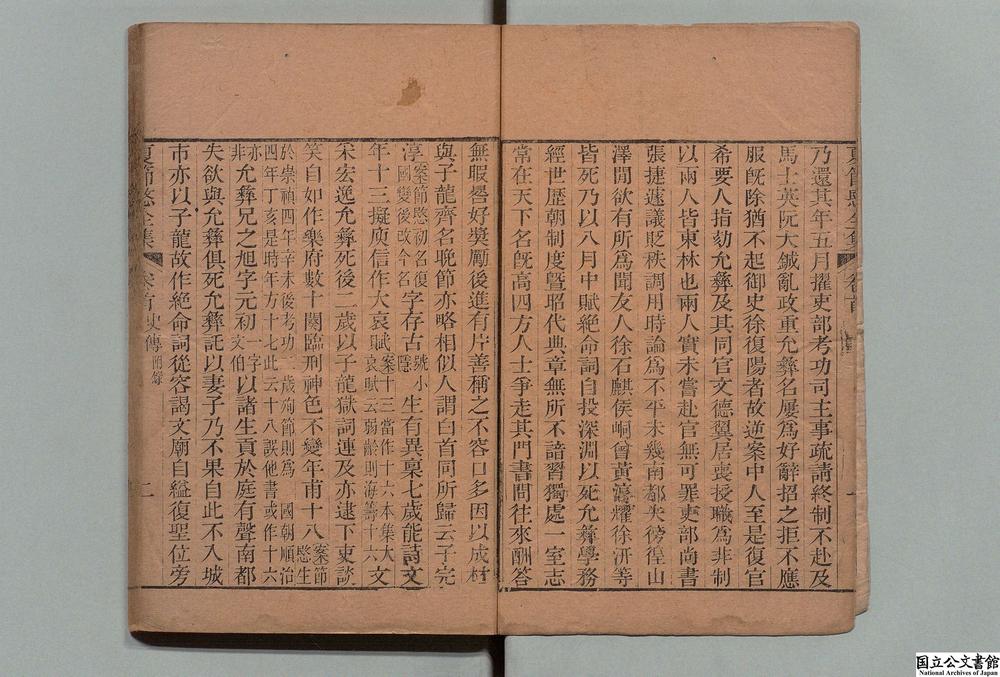 乃還其年五月擢吏部考功司主事疏請終制不赴及
馬士英阮大鋮亂政重允彝名屢爲好辭招之拒不應
服旣除猶不起御史徐復陽者故逆案中人至是復官
希要人指劾允彝及其同官文德翼居喪授職爲非制
以兩人皆東林也兩人實未嘗赴官無可罪吏部尚書
張捷遽議貶秩調用時論爲不平未幾南都失徬徨山
澤閒欲有所爲聞友人徐石麒侯峒曾黃淳耀徐汧等
皆死乃以八月中賦絶命詞自投深淵以死允彝學務
經世歷朝制度曁昭代典章無所不諳習獨處一室志
常在天下名旣高四方人士爭走其門書問往來酬答
無暇晷好奬勵後進有片善稱之不容口多因以成材
與子龍齊名晚節亦略相似人謂白首同所歸云子完
淳案節愍初名復國變後改今名字存古號小隱生有異稟七歲能詩文
年十三擬庾信作大哀賦案十三當作十六本集大哀賦云弱齡則海籌十六文
采宏逸允彝死後二歲以子龍獄詞連及亦逮下吏談
笑自如作樂府數十闋臨刑神色不變年甫十八案節愍生
於崇禎四年辛未後考功二歲殉節則爲 國朝順治
四年丁亥是時年方十七此云十八誤他書或作十六
亦非允彝兄之旭字元初一字文伯以諸生貢於庭有聲南都
失欲與允彝俱死允彝託以妻子乃不果自此不入城
市亦以子龍故作絶命詞從容謁文廟自縊復聖位旁
夏節愍全集 卷首 史傳 附錄 二